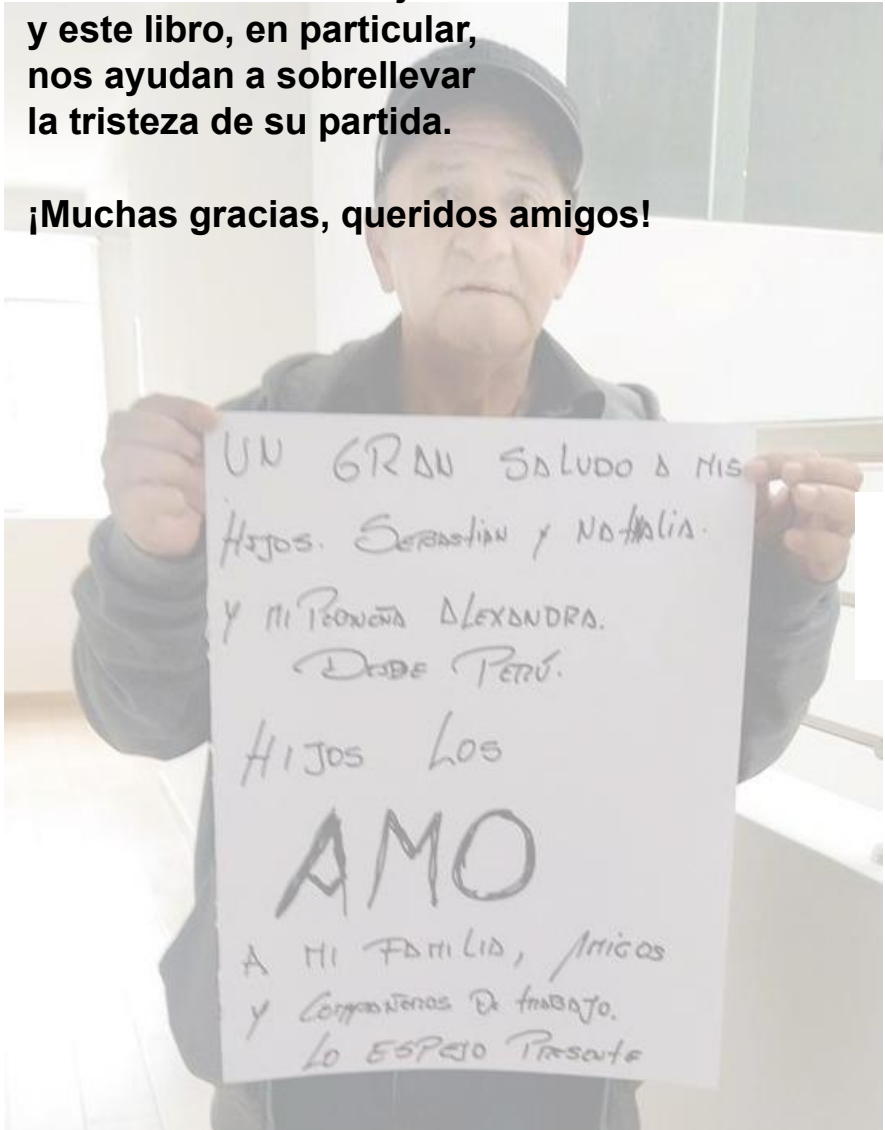 y este libro, en particular,
nos ayudan a sobrellevar
la tristeza de su partida.
¡Muchas gracias, queridos amigos!
UN GRAN SALUDO A MIS
HIJOS. SEBASTIAN Y NATHALIA.
Y MI PEQUEÑA ALEXANDRA.
DESDE PERÚ.
HIJOS LOS
AMO
A MI FAMILIA, AMIGOS
Y COMPAÑEROS DE TRABAJO.
LO ESPEJO PRESENTE